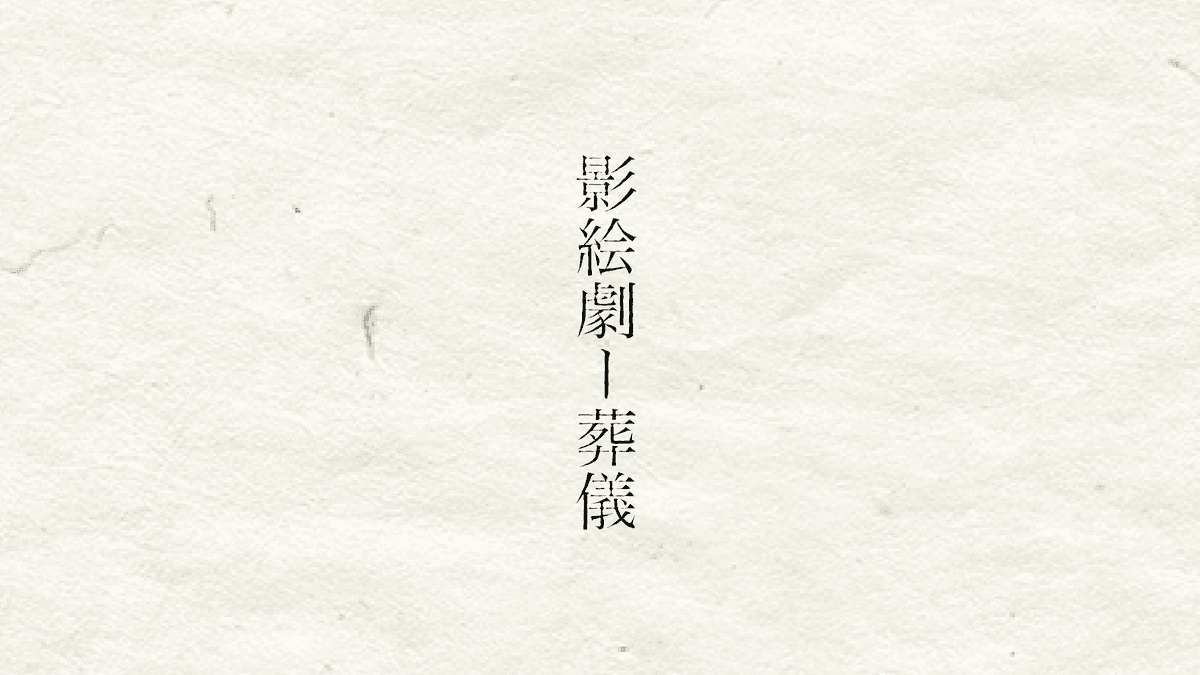 影絵劇ー葬儀